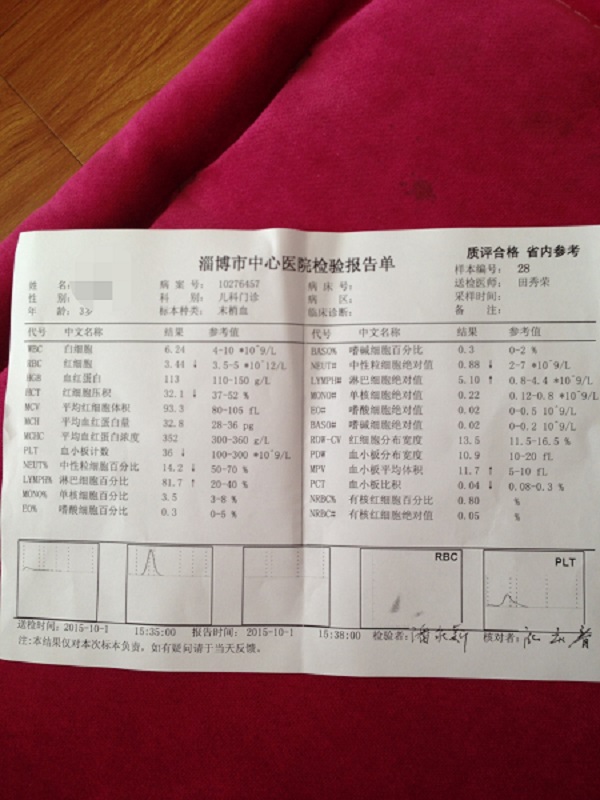 淄博市中心医院检验报告单
质评合格 省内参考
姓 名:
病 案 号: 10276457
病 床 号:
样本编号: 28
性 别:
科 别: 儿科门诊
病 区:
送检医师: 田秀荣
年 龄: 33
标本种类: 末梢血
临床诊断:
采样时间:
备 注:
代号 中文名称 结果 参考值
WBC 白细胞 6.24 4-10 *10^9/L
RBC 红细胞 3.44 ↓ 3.5-5 *10^12/L
HGB 血红蛋白 113 110-150 g/L
HCT 红细胞压积 32.1 ↓ 37-52 %
MCV 平均红细胞体积 93.3 80-105 fL
MCH 平均血红蛋白量 32.8 28-36 pg
MCHC 平均血红蛋白浓度 352 300-360 g/L
PLT 血小板计数 36 ↓ 100-300 *10^9/L
NEUT% 中性粒细胞百分比 14.2 ↓ 50-70 %
LYMPH% 淋巴细胞百分比 81.7 ↑ 20-40 %
MONO% 单核细胞百分比 3.5 3-8 %
EO% 嗜酸细胞百分比 0.3 0-5 %
代号 中文名称 结果 参考值
BASO% 嗜碱细胞百分比 0.3 0-2 %
NEUT# 中性粒细胞绝对值 0.88 ↓ 2-7 *10^9/L
LYMPH# 淋巴细胞绝对值 5.10 ↑ 0.8-4.4 *10^9/L
MONO# 单核细胞绝对值 0.22 0.12-0.8 *10^9/L
EO# 嗜酸细胞绝对值 0.02 0-0.5 10^9/L
BASO# 嗜碱细胞绝对值 0.02 0-0.2 10^9/L
RDW-CV 红细胞分布宽度 13.5 11.5-16.5 %
PDW 血小板分布宽度 10.9 10-20 fL
MPV 血小板平均体积 11.7 ↑ 5-10 fL
PCT 血小板比积 0.04 ↓ 0.08-0.3 %
NRBC% 有核红细胞百分比 0.80 %
NRBC# 有核红细胞绝对值 0.05 %
RBC
PLT
送检时间: 2015-10-1 15:35:00 报告时间: 2015-10-1 15:38:00 检验者: 核对者:
注:本结果仅对本次标本负责，如有疑问请于当天反馈。